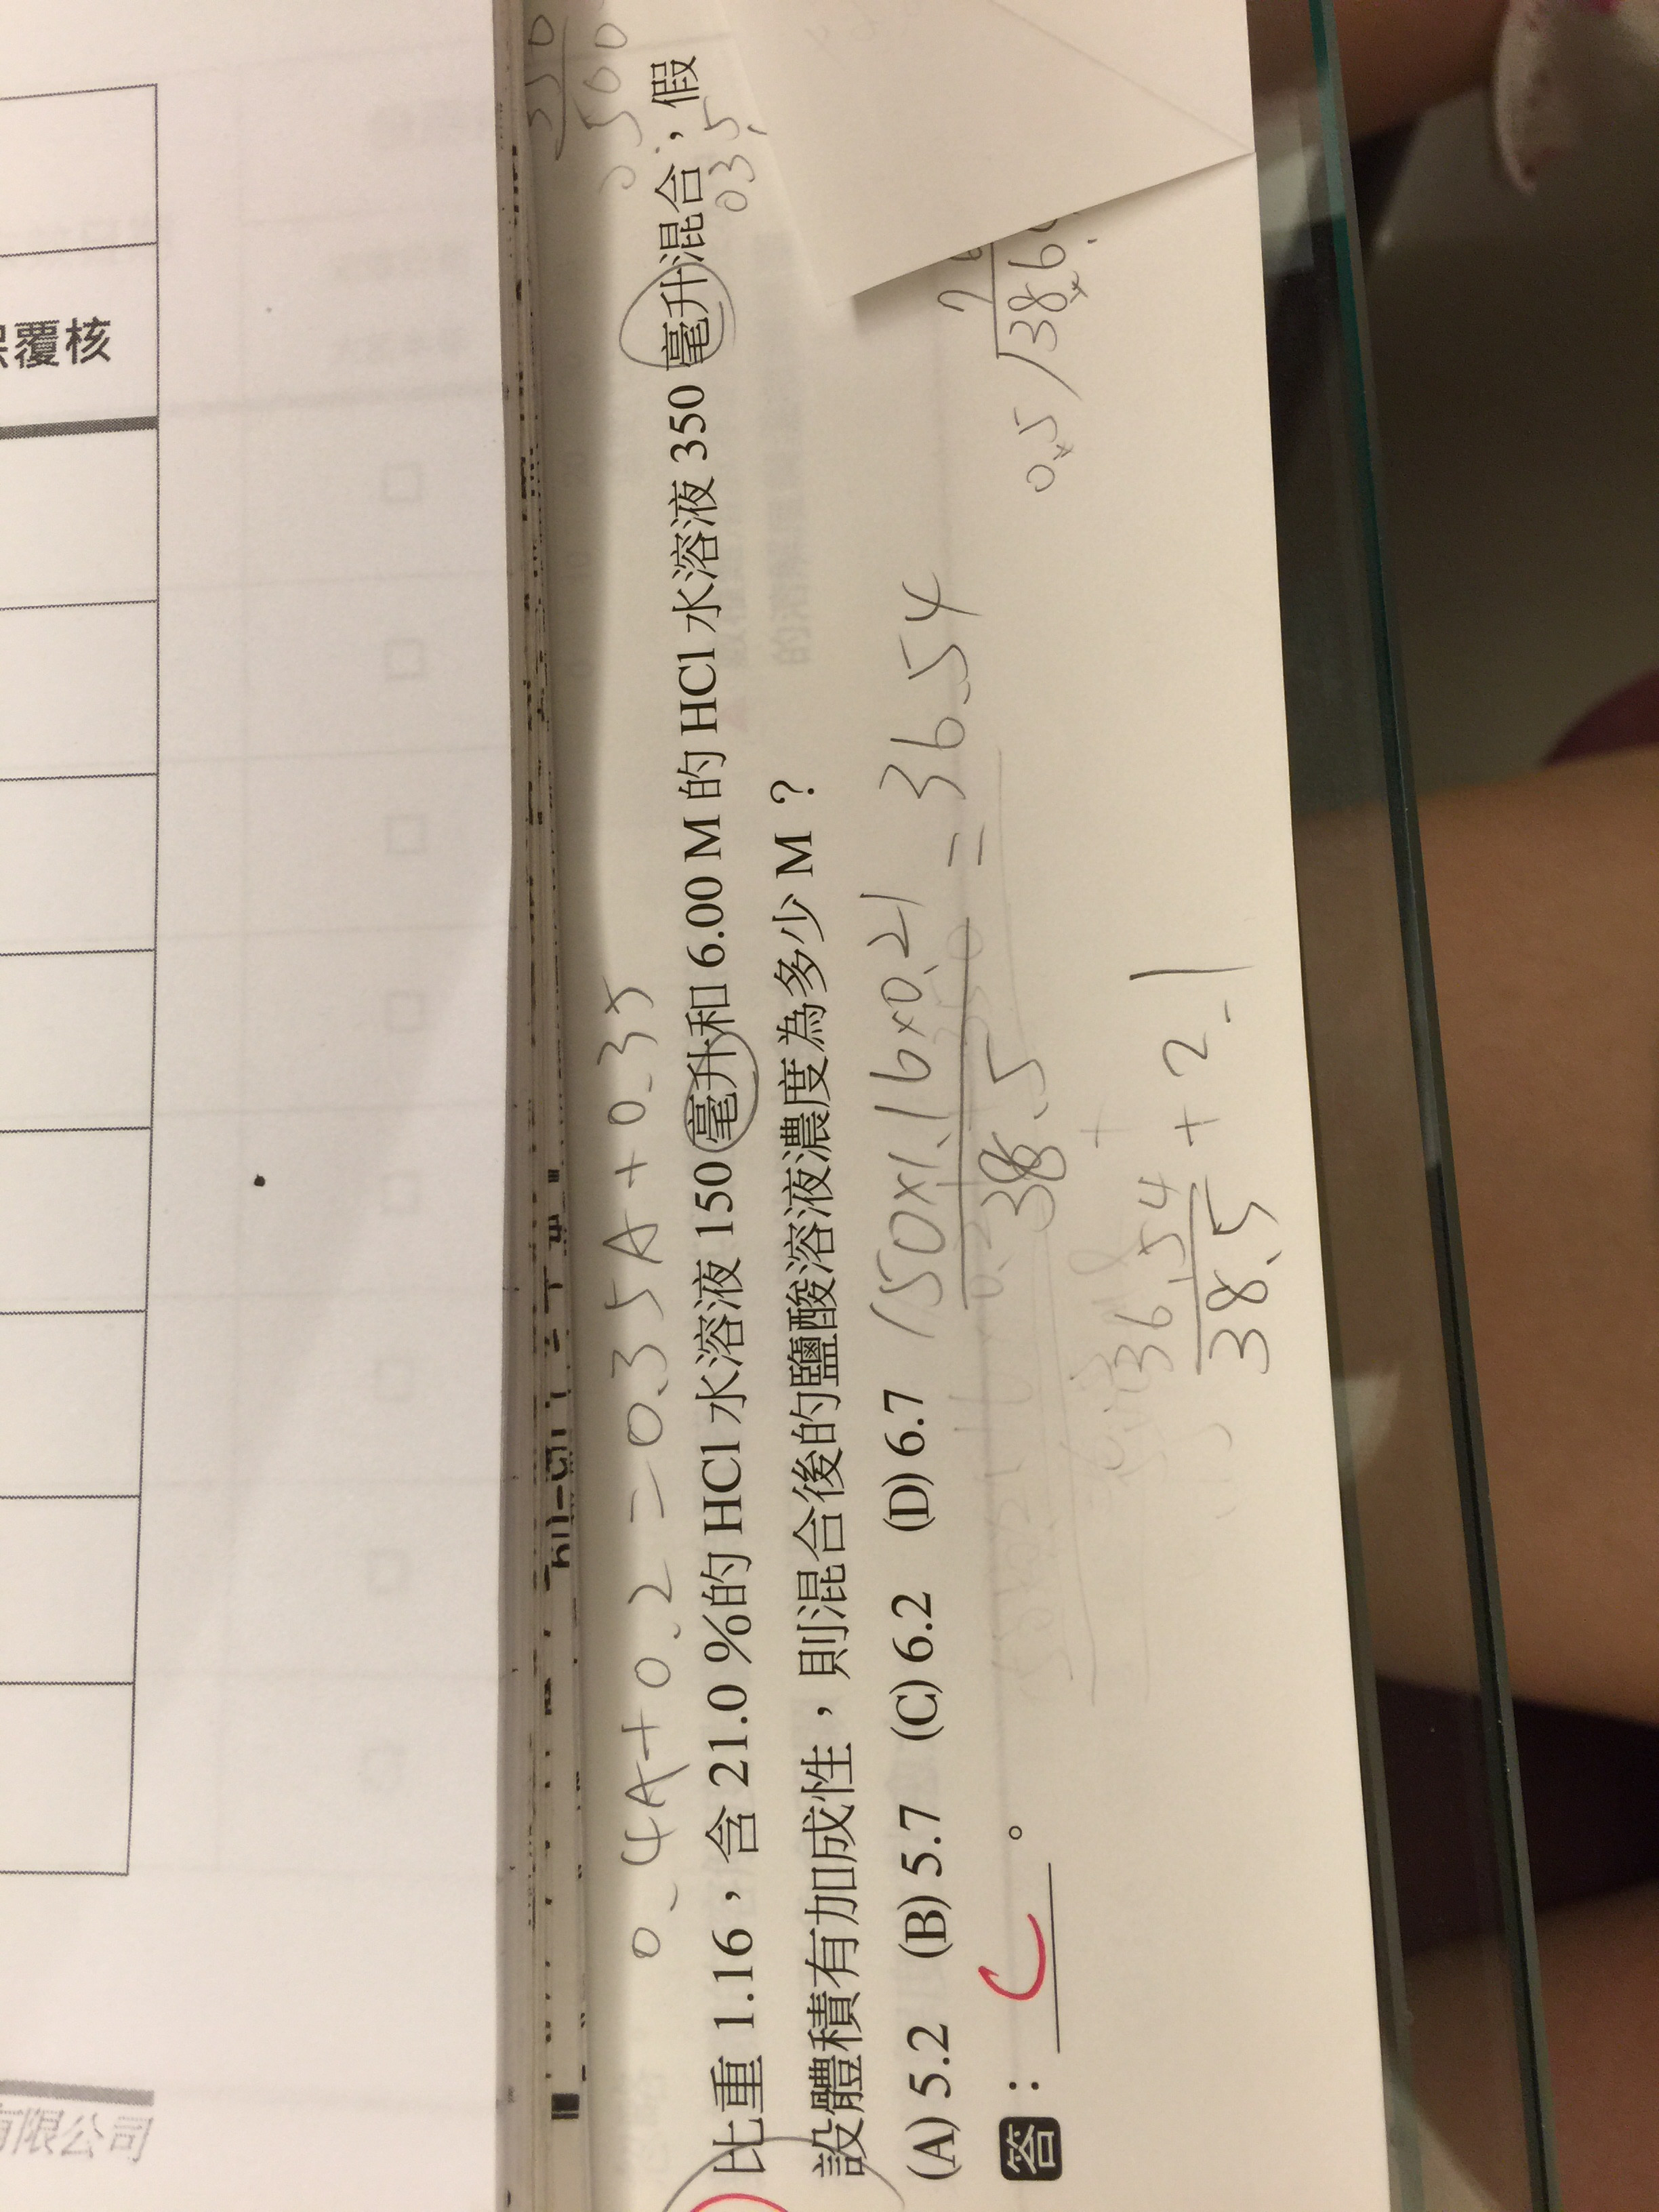 覆核
有限公司
0.4A+0.2=0.35A+0.3x
350
比重 1.16，含 21.0 %的 HCl 水溶液 150 毫升和 6.00 M 的 HCl 水溶液 350 毫升混合，假
0.35
設體積有加成性，則混合後的鹽酸溶液濃度為多少 M？
(A) 5.2 (B) 5.7 (C) 6.2 (D) 6.7
150×1.16×0.21
38.5
= 36.54
答：C。
0.5
36.54
38.5
+ 2.1